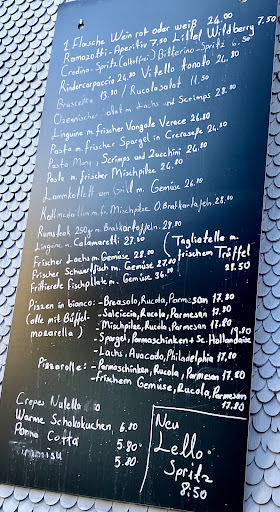 1 Flasche Wein rot oder weiß 24.00
Ramazotti-Aperitiv 7,50 Lillet Wildberry 7.50
Crodino-Spritz (alkolfrei) Bitterino-Spritz 6.50
Rindercarpaccio 24.80 Vitello tonato 24.80
Bruscetta 13.80 / Rucolasalat 11.50
Salat m. Lachs und Scrimps 28.80
Linguine m. frischer Vongole Verace 26.80
Pasta m. frischer Spargel in Cremesoße 24.80
Pasta Mang, Scrimps und Zucchini 24.80
Pasta m. frischer Mischpilze 24.80
Lammkotlett vom Grill m. Gemüse 26.80
m. Mischpilze O. Bratkartofeln. 28.80
Rumsteak 250g m. Bratkartoffeln. 29.80
Linguine m. Calamaretti 27.80
(Tagliatelle m. frischem Trüffel 28.50
Frischer Lachs m. Gemüse 28.80
Frischer Schwertfisch m. Gemüse 27.80
Fritierete Fischplatte m. Gemüse 36.80
Pizzen in bianco: - Breasolo, Rucola, Parmesan 17.80
(alle mit Büffel- - Salciccia, Rucola, Parmesan 17.80
mozarella) - Mischpilze, Rucola, Parmesan 17.80
- Spargel, Parmaschinken + Sc. Hollandaise 19.80
- Lachs, Avocado, Philadelphia 17.80
Pizzarolle: - Parmaschinken, Rucola, Parmesan 17.80
- frischem Gemüse, Rucola, Parmesan 17.80
Crepes Nutella
Warme Schokokuchen 6.80
Panna Cotta 5.80
Tiramisu 5.80
Neu
Lello
Spritz
8:50